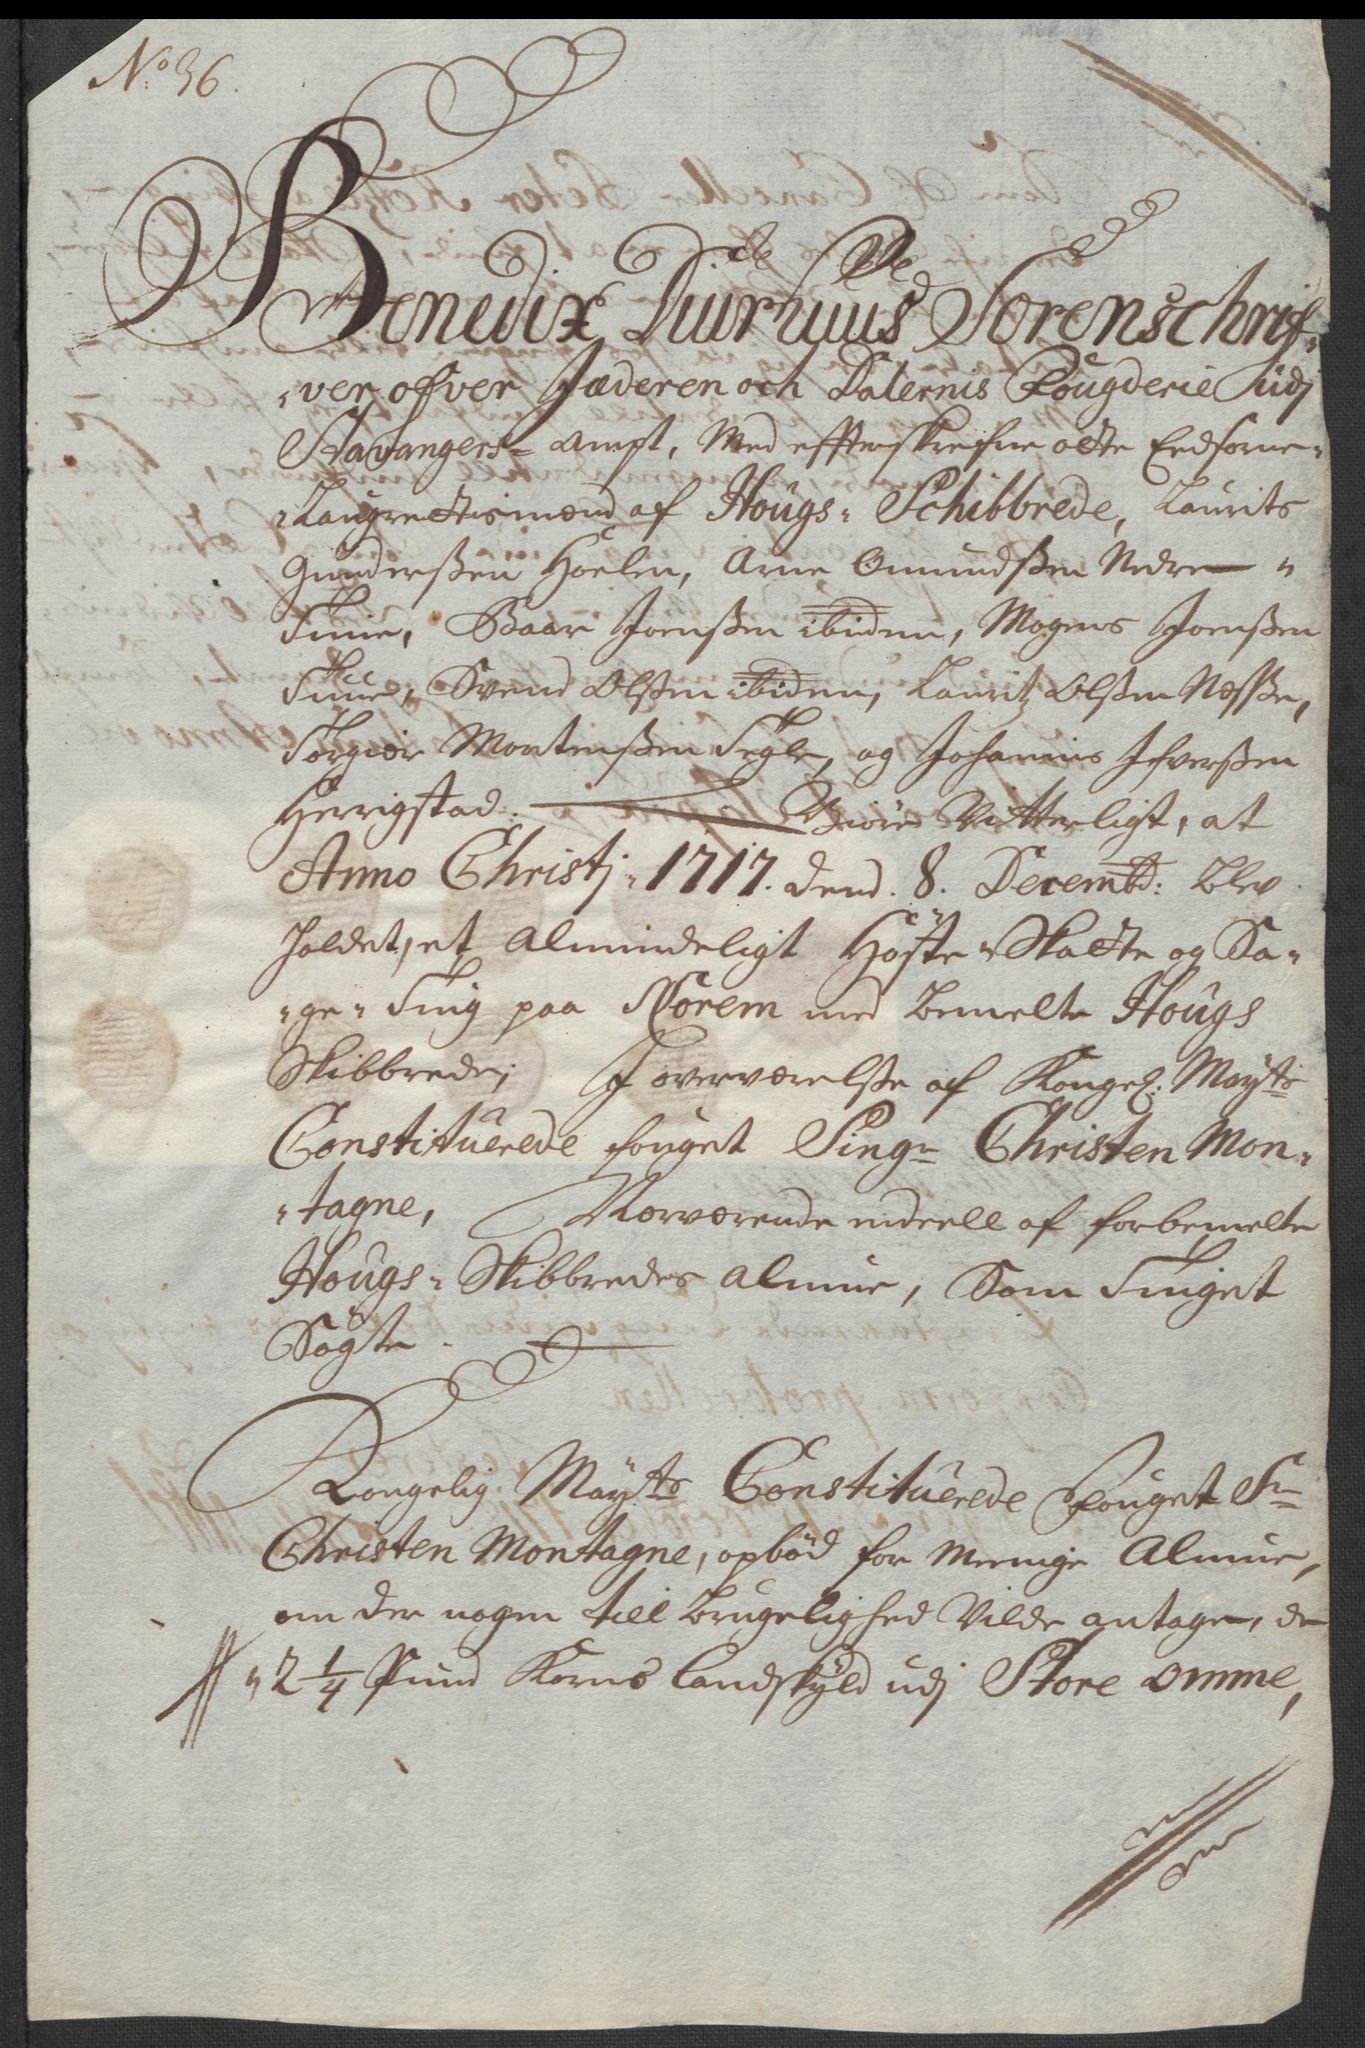 No 36.
Benedix Diuruus Sorenschrif-
-ver ofver Jæderen och Dalernis Fougderie udj
Stavangers= Ampt, Med effterskrefne otte Eedsorne-
-Laugrettismænd af Hougs= Schibbrede, Laurits
Gunderßen Høelen, Arne Omundßen Nedre-
Tuue, Baar Joenßen ibidem, Mogens Joenßen
Tuue, Svend Olßen ibidem, Lauritz Olßen Næsse,
Torgier Mortenßen Segle, og Johannis Ifverßen
Herrigstad. Giøre Vitterligt, at
Anno Christj 1717. dend. 8. Decembd: blev
holdet, et Almindeligt Høste- Skatte og Sa-
-ge- Ting paa Norem med bemelte Hougs
Skibbrede; I overværelße af Kongel: Mayts
Constituerede fouget Singr Christen Mon-
-tagne, Nærværende meedeell af forbemelte
Hougs= Skibbredes Almue, Som Tinget
Søgte.
Kongelig Mayts Constituerede Fouget Sr
Christen Montagne, opbød for Meenige Almue,
om der nogen till brugelighed Vilde antage, de
2 1/4 Pund Korns Landskyld udj Store Omme,